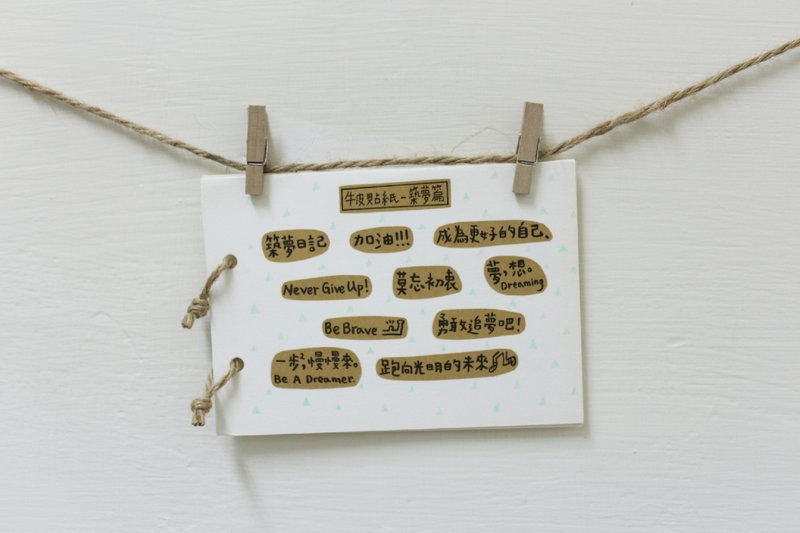 牛皮貼紙-築夢篇
築夢日記
加油!!!
成為更好的自己、
Never Give Up!
莫忘初衷
夢，想。
Dreaming
Be Brave
勇敢追夢吧!
一步²,慢慢來。
Be A Dreamer.
跑向光明的未來